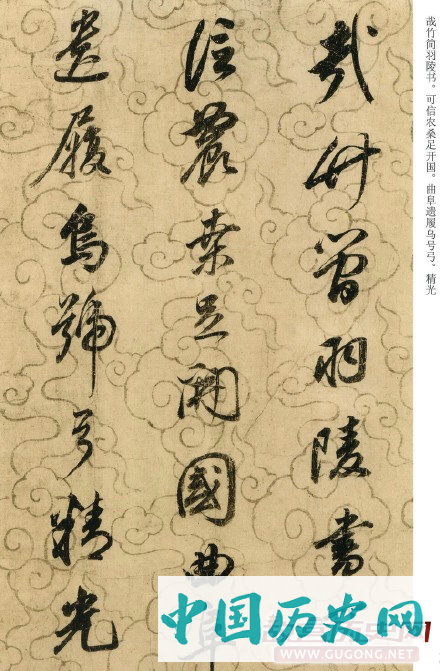 哉竹简羽陵书。可信农桑足开国。曲阜遗履乌号弓，精光
哉竹簡羽陵書
信農桑足開國曲阜
遺履烏號弓精光
中国历史网
WWW.GUGONG.NET